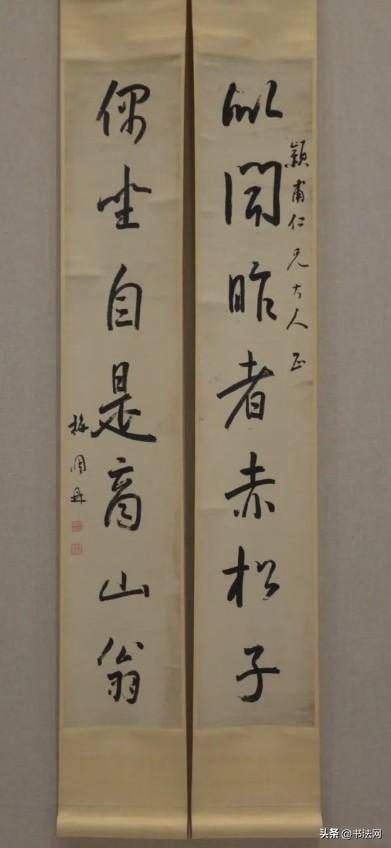 似聞昨者赤松子
穎甫仁兄大人正
偶坐自是商山翁
梅調鼎
头条 @书法网